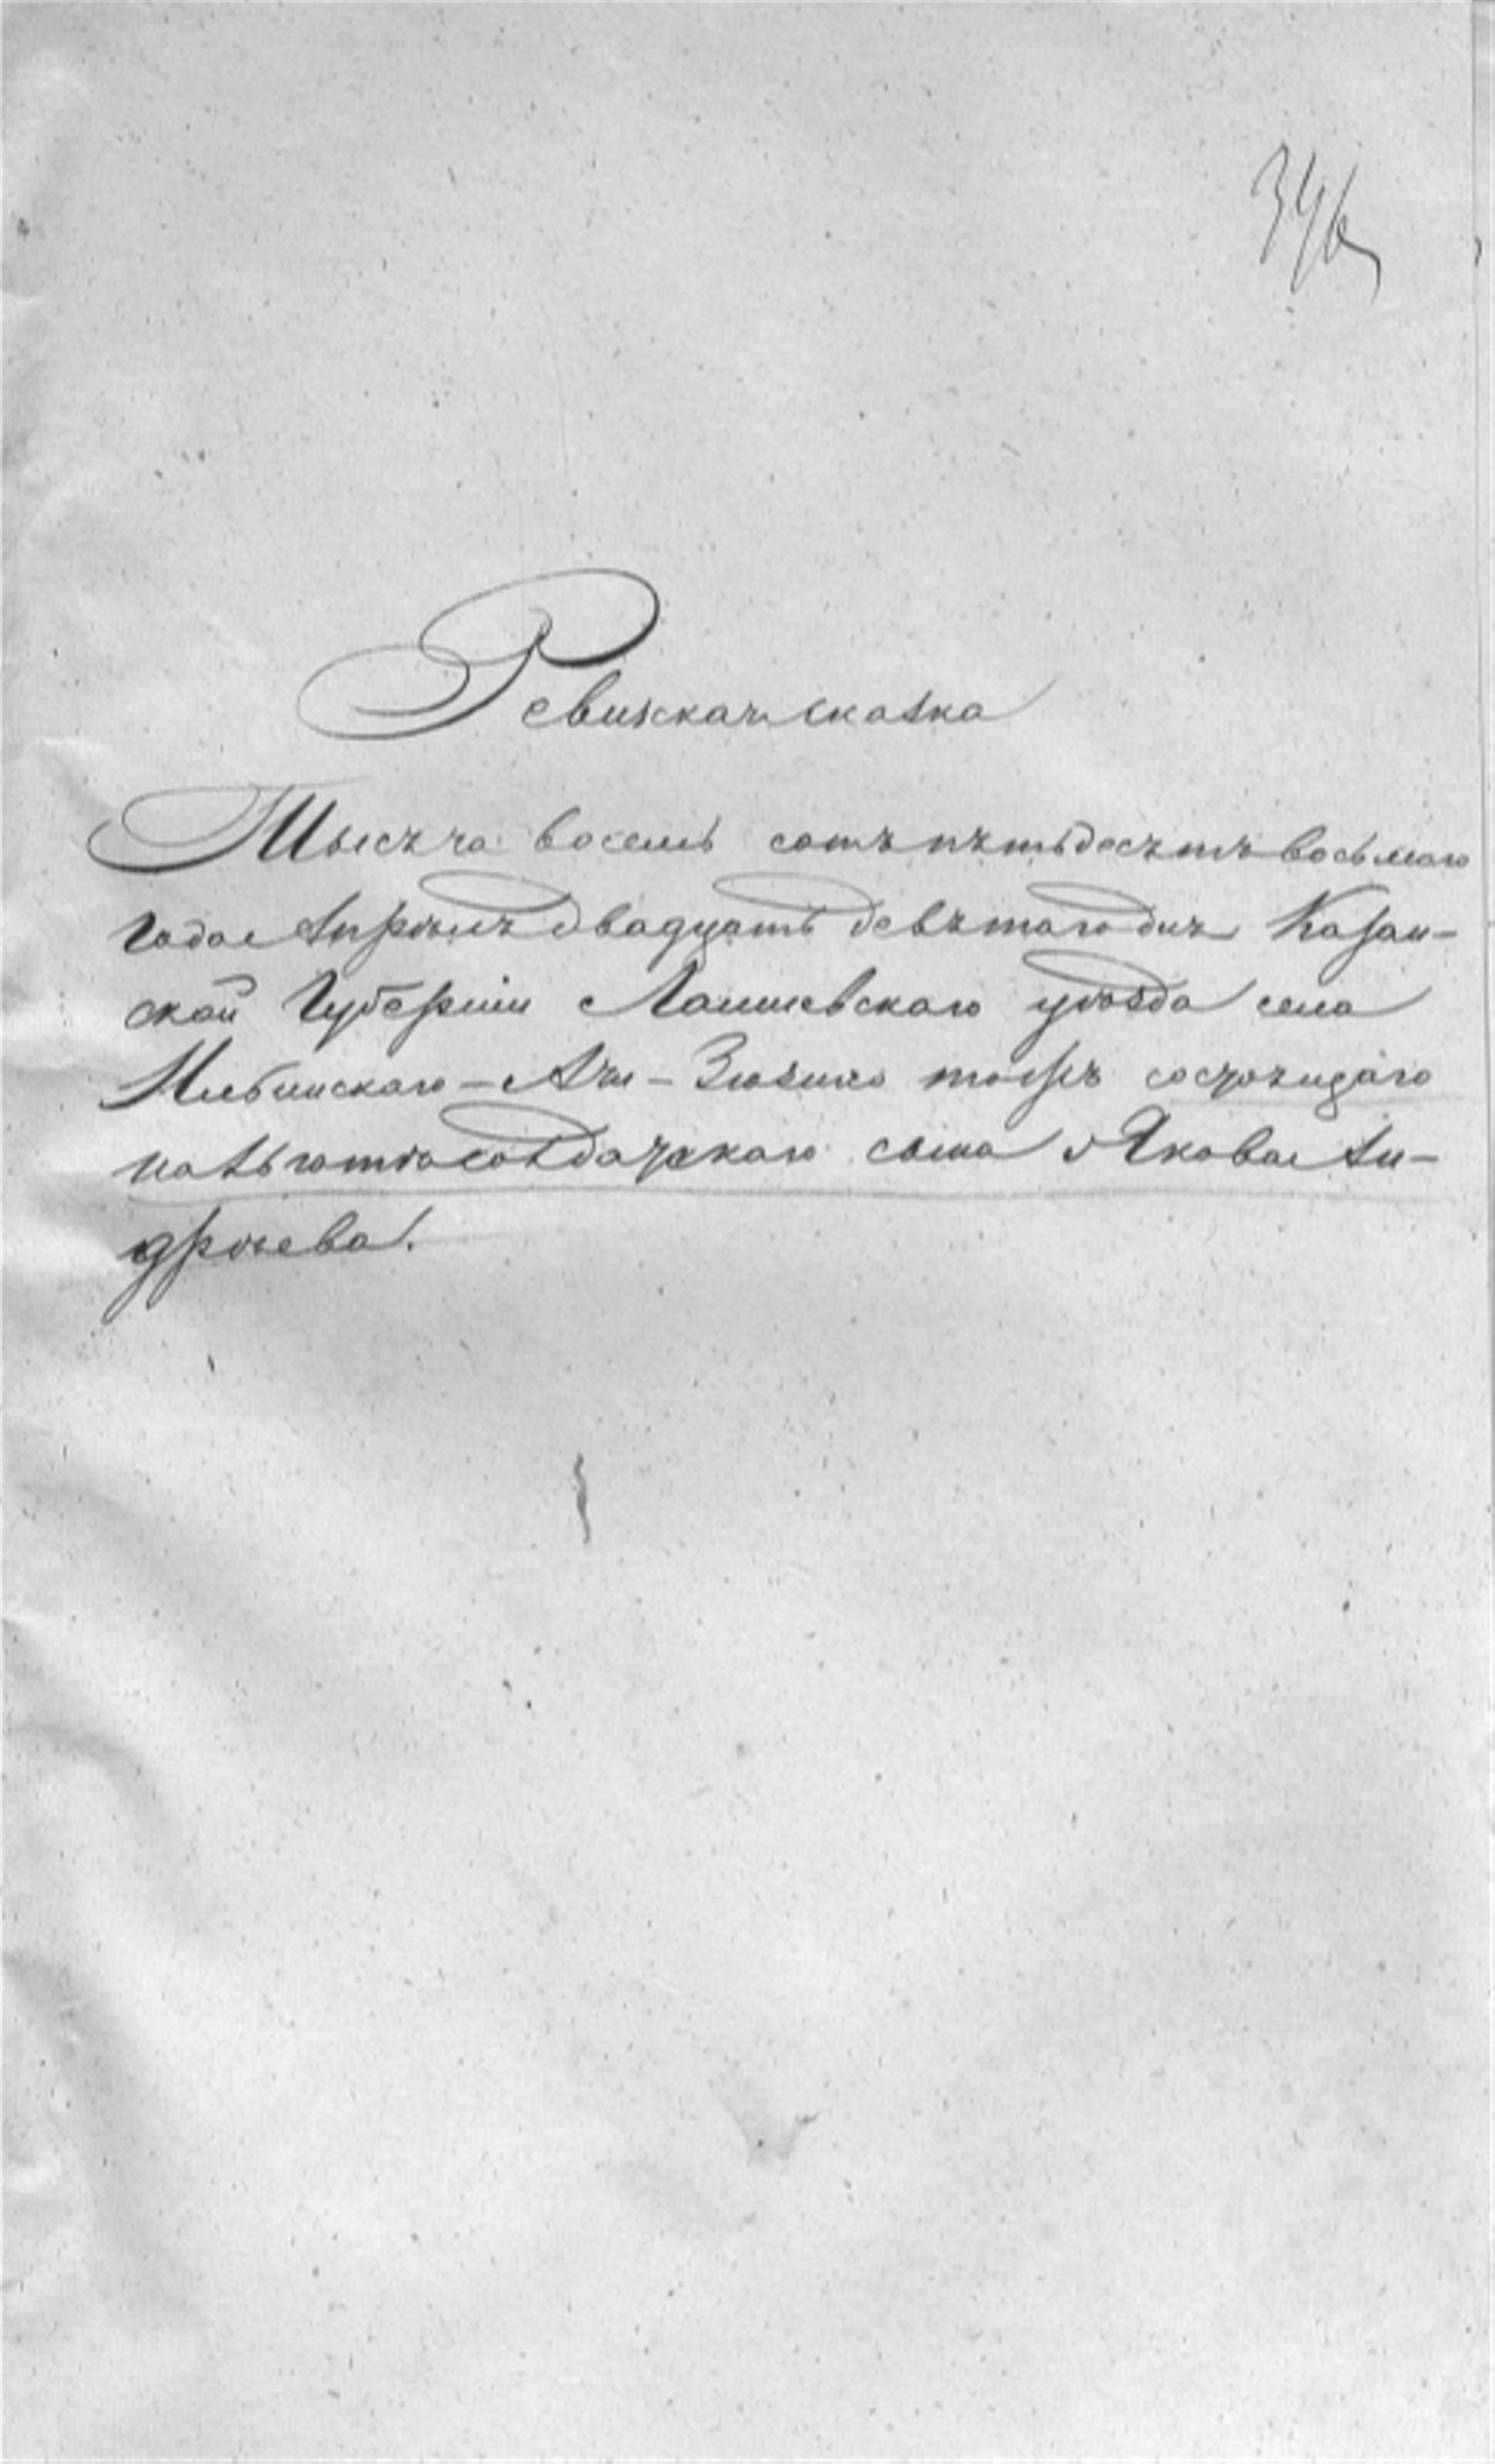 346
Ревизская сказка
Тысяча восемь сотъ пятьдесятъ восьмаго
года Апрѣля двадцать девятаго дня Казан-
ской Губерніи Лаишевскаго уѣзда села
Аки-Зюзино тожъ состоящаго
на льготѣ солдатскаго сына Якова Ан-
дрѣева.